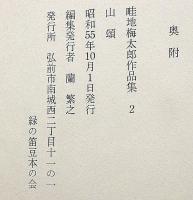 奥附
畦地梅太郎作品集 2
山頌
昭和55年10月1日発行
編集発行者 蘭繁之
発行所 弘前市南城西二丁目十一の一
緑の笛豆本の会